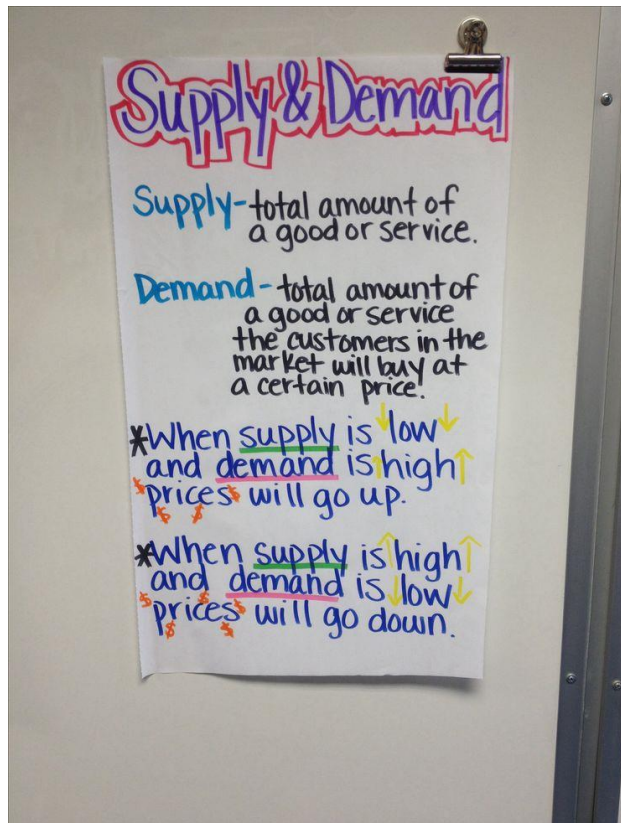 Supply & Demand
Supply-total amount of
a good or service.
Demand - total amount of
a good or service
the customers in the
market will buy at
a certain price!
*When supply is ↓low↓
and demand is ↑high↑
$prices$ will go up.
$ $
*When supply is ↑high↑
and demand is ↓low↓
$prices$ will go down.
$ $